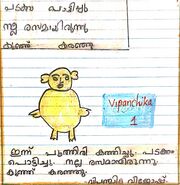 പടക്കം പൊട്ടിച്ചു
നല്ല രസമായിരുന്നു
കുഞ്ഞ് കരഞ്ഞു.
Vipanchika
1
ഇന്ന് പൂത്തിരി കത്തിച്ചു. പടക്കം
പൊട്ടിച്ചു. നല്ല രസമായിരുന്നു.
കുഞ്ഞ് കരഞ്ഞു.
വിപഞ്ചിക